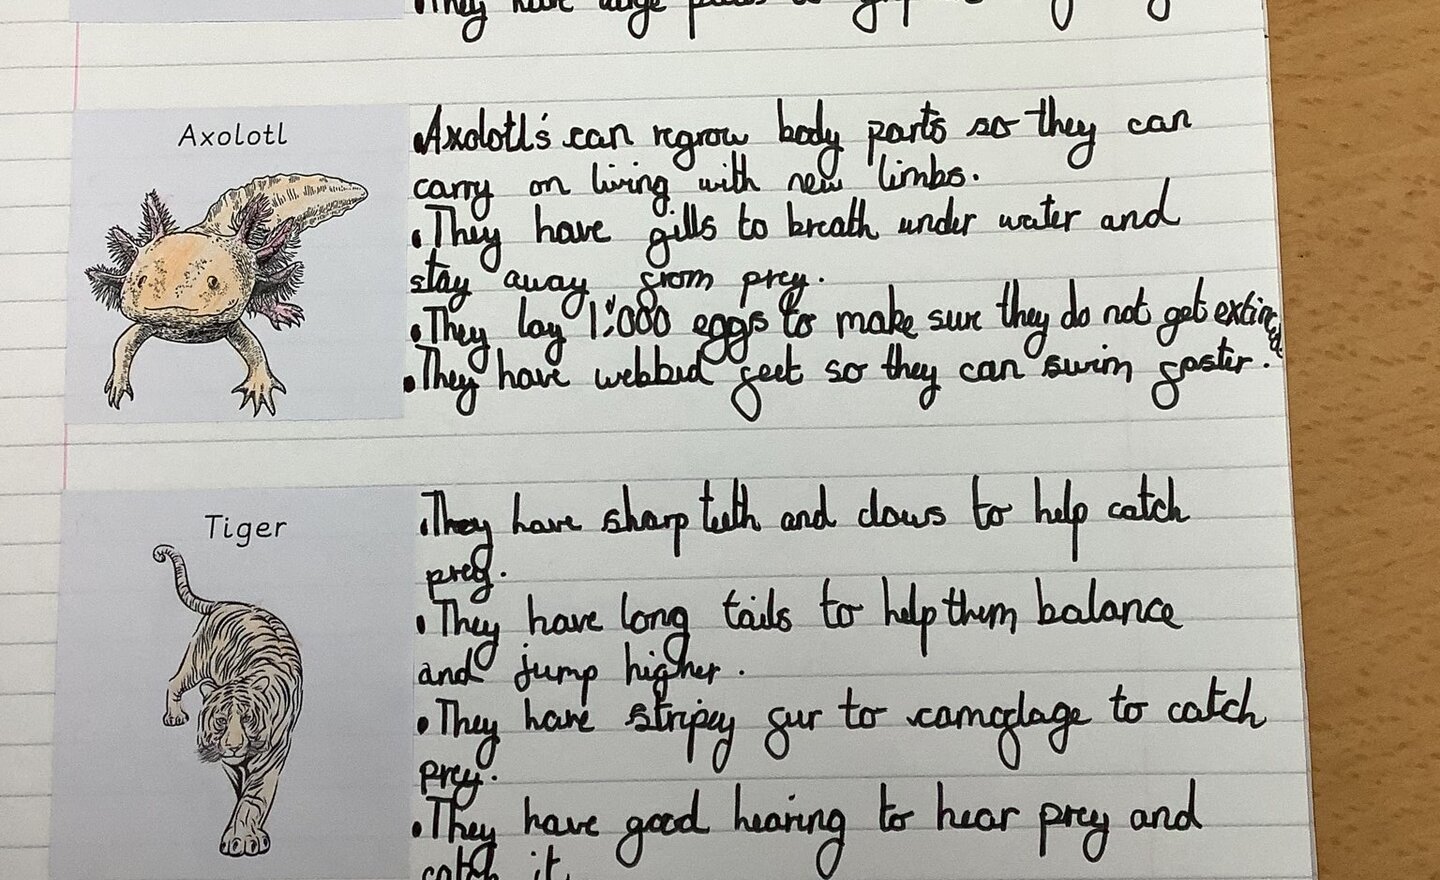 They have large to
Axolotl
• Axolotl's can regrow body parts so they can
carry on living with new limbs.
• They have gills to breath under water and
stay away from prey.
• They lay 1,000 eggs to make sure they do not get extinct
• They have webbed feet so they can swim faster.
Tiger
• They have sharp teeth and claws to help catch
prey.
• They have long tails to help them balance
and jump higher.
• They have stripey fur to camoflage to catch
prey.
• They have good hearing to hear prey and
catch it.